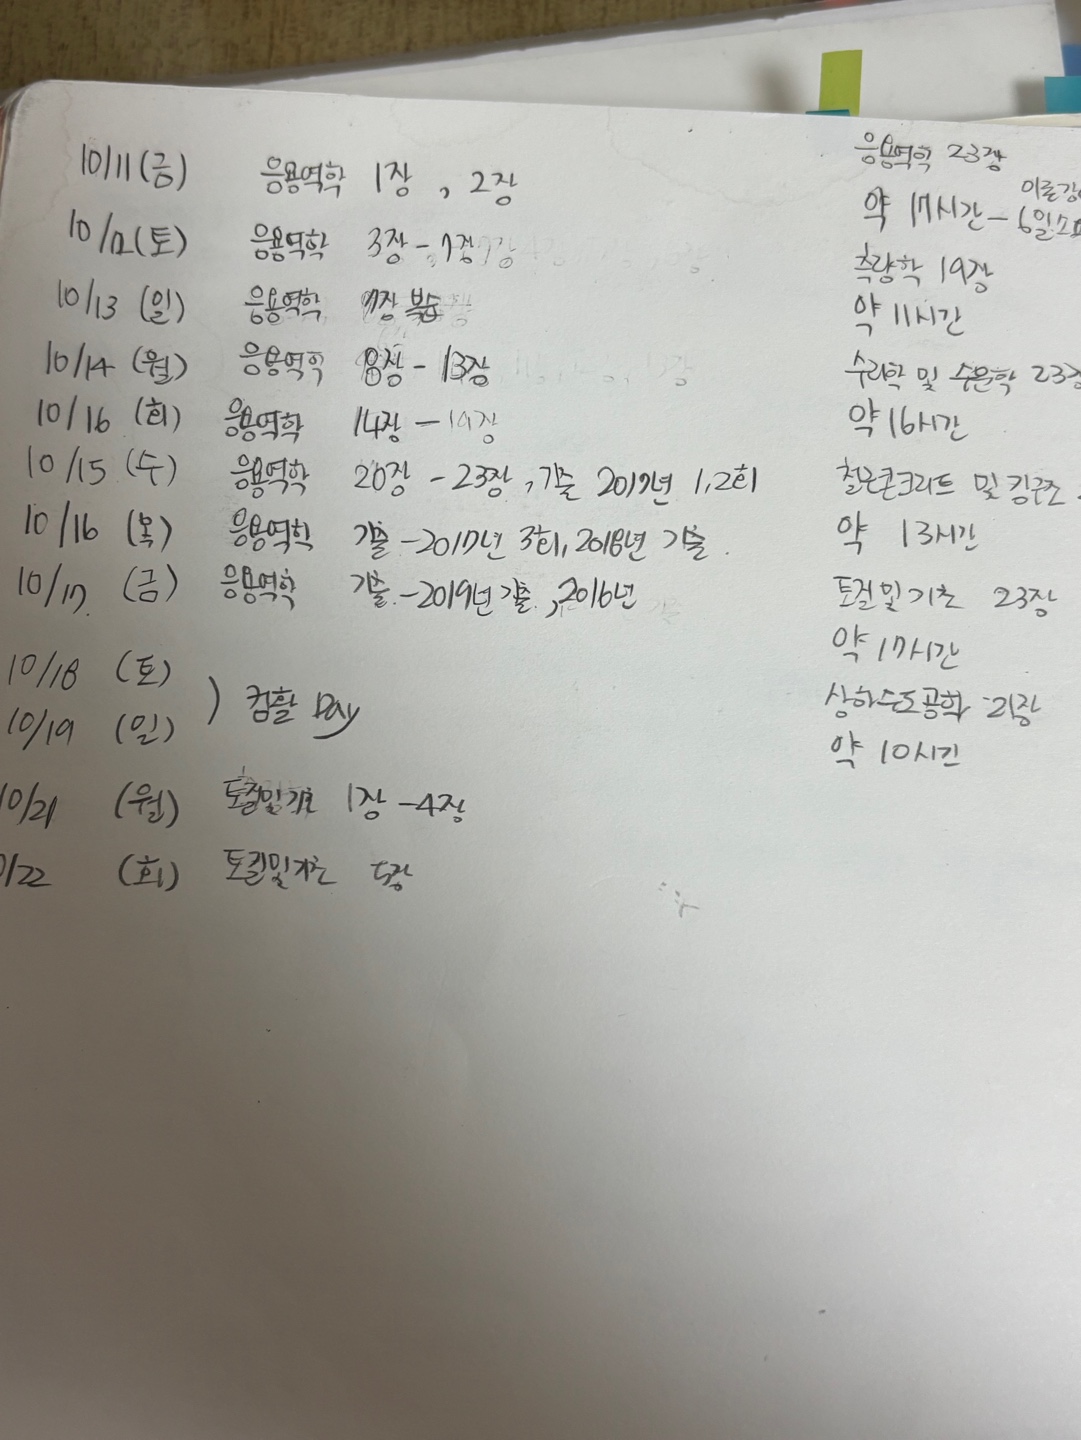 10/11 (금) 응용역학 1장, 2장
10/12 (토) 응용역학 3장 - 7장
10/13 (일) 응용역학 7장 복습
10/14 (월) 응용역학 8장 - 13장
10/16 (화) 응용역학 14장 - 19장
10/15 (수) 응용역학 20장 - 23장, 기출 2017년 1,2회
10/16 (목) 응용역학 기출 - 2017년 3회, 2018년 기출
10/17 (금) 응용역학 기출 - 2019년 기출, 2016년
10/18 (토)
10/19 (일) ) 컴활 Day
10/21 (월) 토질및기초 1장 - 4장
/22 (화) 토질및기초 5장
응용역학 23장
이론강
약 17시간 - 6일소요
측량학 19장
약 11시간
수리학 및 수문학 23장
약 16시간
철근콘크리트 및 강구조
약 13시간
토질및기초 23장
약 17시간
상하수도공학 21장
약 10시간